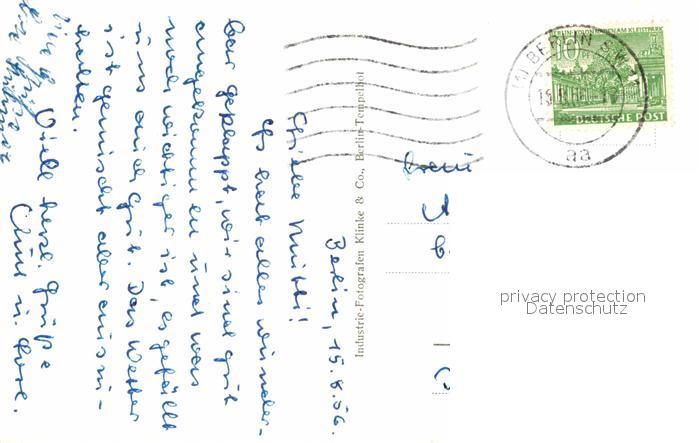 Berlin, 15.8.56.
Liebe Mutti!
Es hat alles wunder-
bar geklappt, wir sind gut
angekommen und was
noch wichtiger ist, es gefällt
uns auch gut. Das Wetter
ist gemischt aber aus zu-
halten.
Viele herzl. Grüße
u.
Viele
Grüße
Industrie-Fotografen Klinke & Co., Berlin-Tempelhof
(1) BERLIN SW
aa
BERLIN · KOLONNADEN AM KLEISTPARK
10
DEUTSCHE POST
privacy protection
Datenschutz